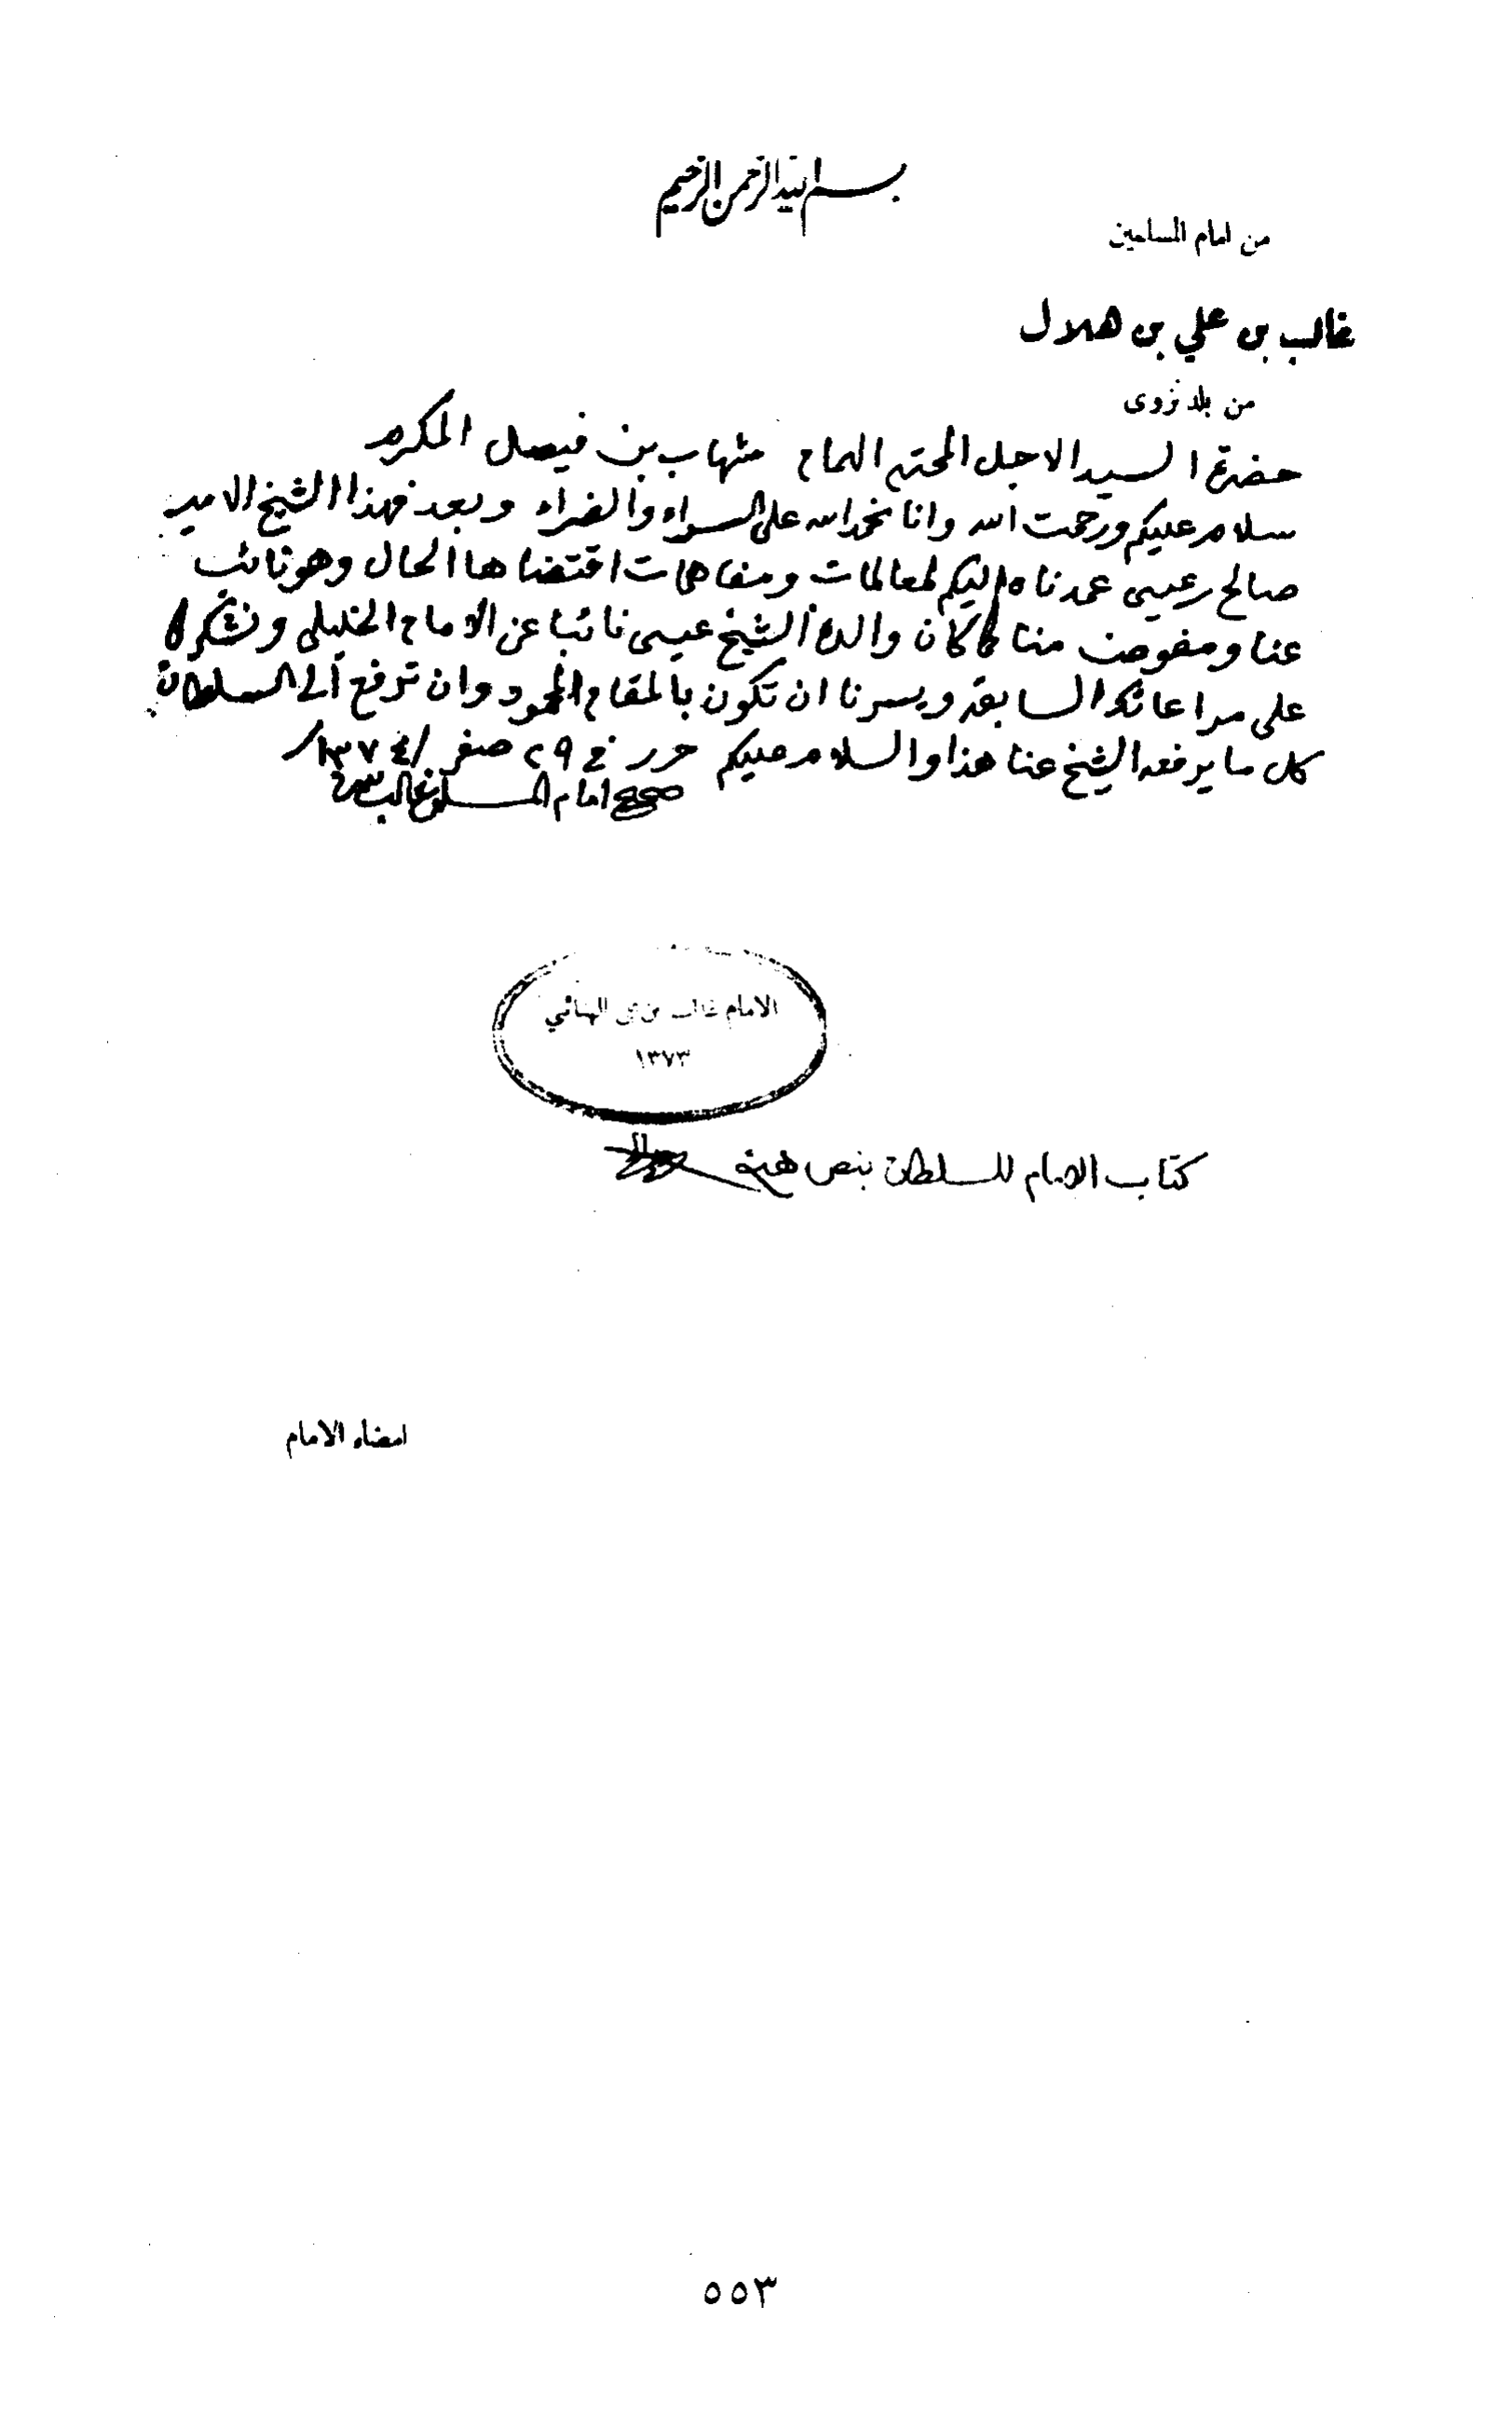 بسم الله الرحمن الرحيم
من امام المسلمين
غالب بن علي بن هلال
من بلد نزوى
حضرة السيد الاجل المحترم الهمام شهاب بن فيصل المكرم
سلام عليكم ورحمت الله وانا نحمد الله على السراء والضراء وبعد فهذا الشيخ الامير
صالح بن عيسى عمدناه اليكم لمعاملات ومفاهمات اقتضاها الحال وهو نائب
عنا ومفوض منا كما كان والده الشيخ عيسى نائبا عن الامام الخليلي ونشكرك
على مراعاتك السابقه ويسرنا ان تكون بالمقام المحمود وان ترفع الى السلطان
كل ما يرفعه الشيخ عنا هذا والسلام عليكم حرر في ٢٩ صفر /١٣٧٤/
صحيح امام المسلمين غالب بيده
الامام غالب بن علي الهنائي
١٣٧٣
كتاب الامام للسلطان بنص هيئه
امضاء الامام
٥٥٣